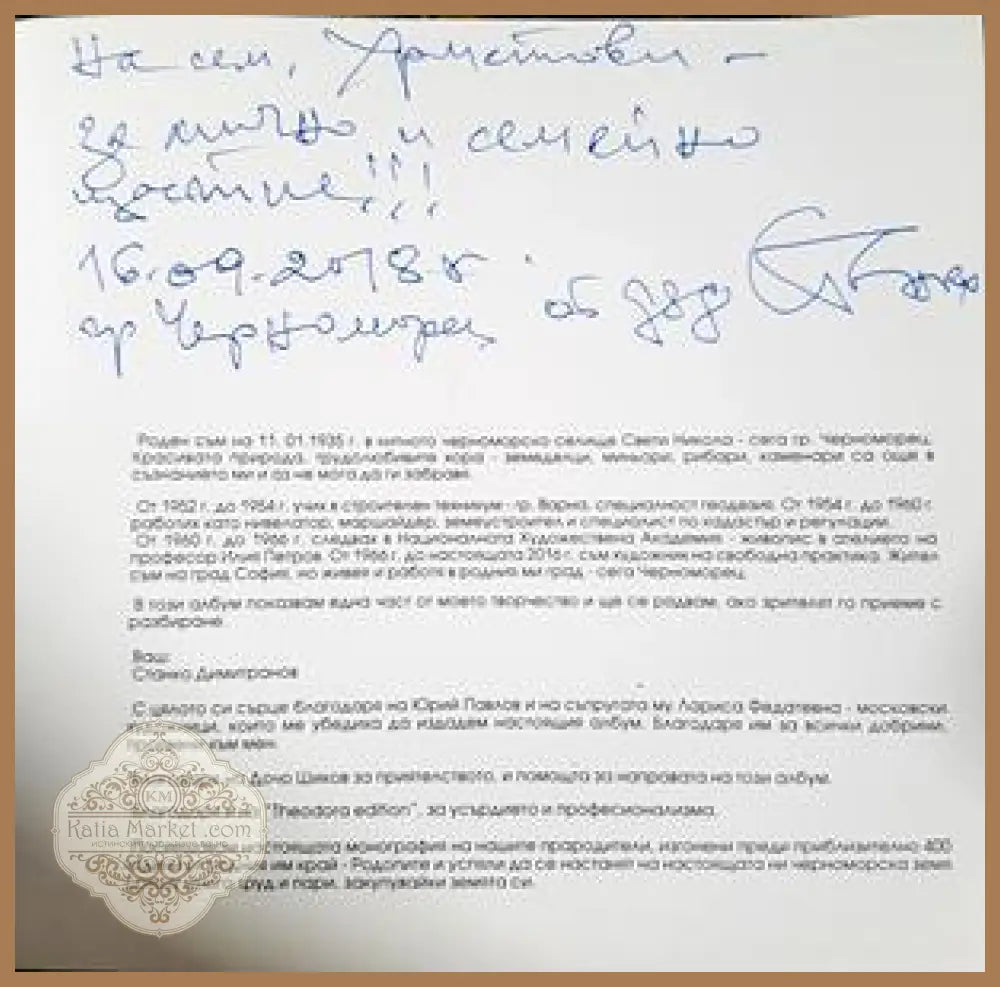 На сем. Христови -
за лично и семейно
щастие!!!
16.09.2018 г.
гр Черноморец от
Роден съм на 11. 01.1935 г. в китното черноморско селище Свети Никола - сега гр. Черноморец.
Красивата природа, трудолюбивите хора - земеделци, миньори, рибари, каменари са още в
съзнанието ми и аз не мога да ги забравя.
От 1952 г. до 1954 г. учих в строителен техникум - гр. Варна, специалност геодезия. От 1954 г. до 1960 г.
работих като нивелатор, маршайдер, земеустроител и специалист по кадастър и регулации.
От 1960 г. до 1966 г. следвах в Националната Художествена Академия - живопис в ателието на
професор Илия Петров. От 1966 г. до настоящата 2016 г. съм художник на свободна практика. Жител
съм на град София, но живея и работя в родния ми град - сега Черноморец.
В този албум показвам една част от моето творчество и ще се радвам, ако зрителят го приеме с
разбиране.
Ваш:
Станко Димитранов
С цялото си сърце благодаря на Юрий Павлов и на съпругата му Лариса Федатевна - московски
които ме убедиха да издадем настоящия албум. Благодаря им за всички добрини,
към мен.
на Дочо Шиков за приятелството, и помощта за направата на този албум.
"Theodora edition", за усърдието и професионализма.
настоящата монография на нашите прародители, изгонени преди приблизително 400
им край - Родопите и успели да се настанят на настоящата ни черноморска земя
труд и пари, закупувайки земята си.
KM
Katia Market .com